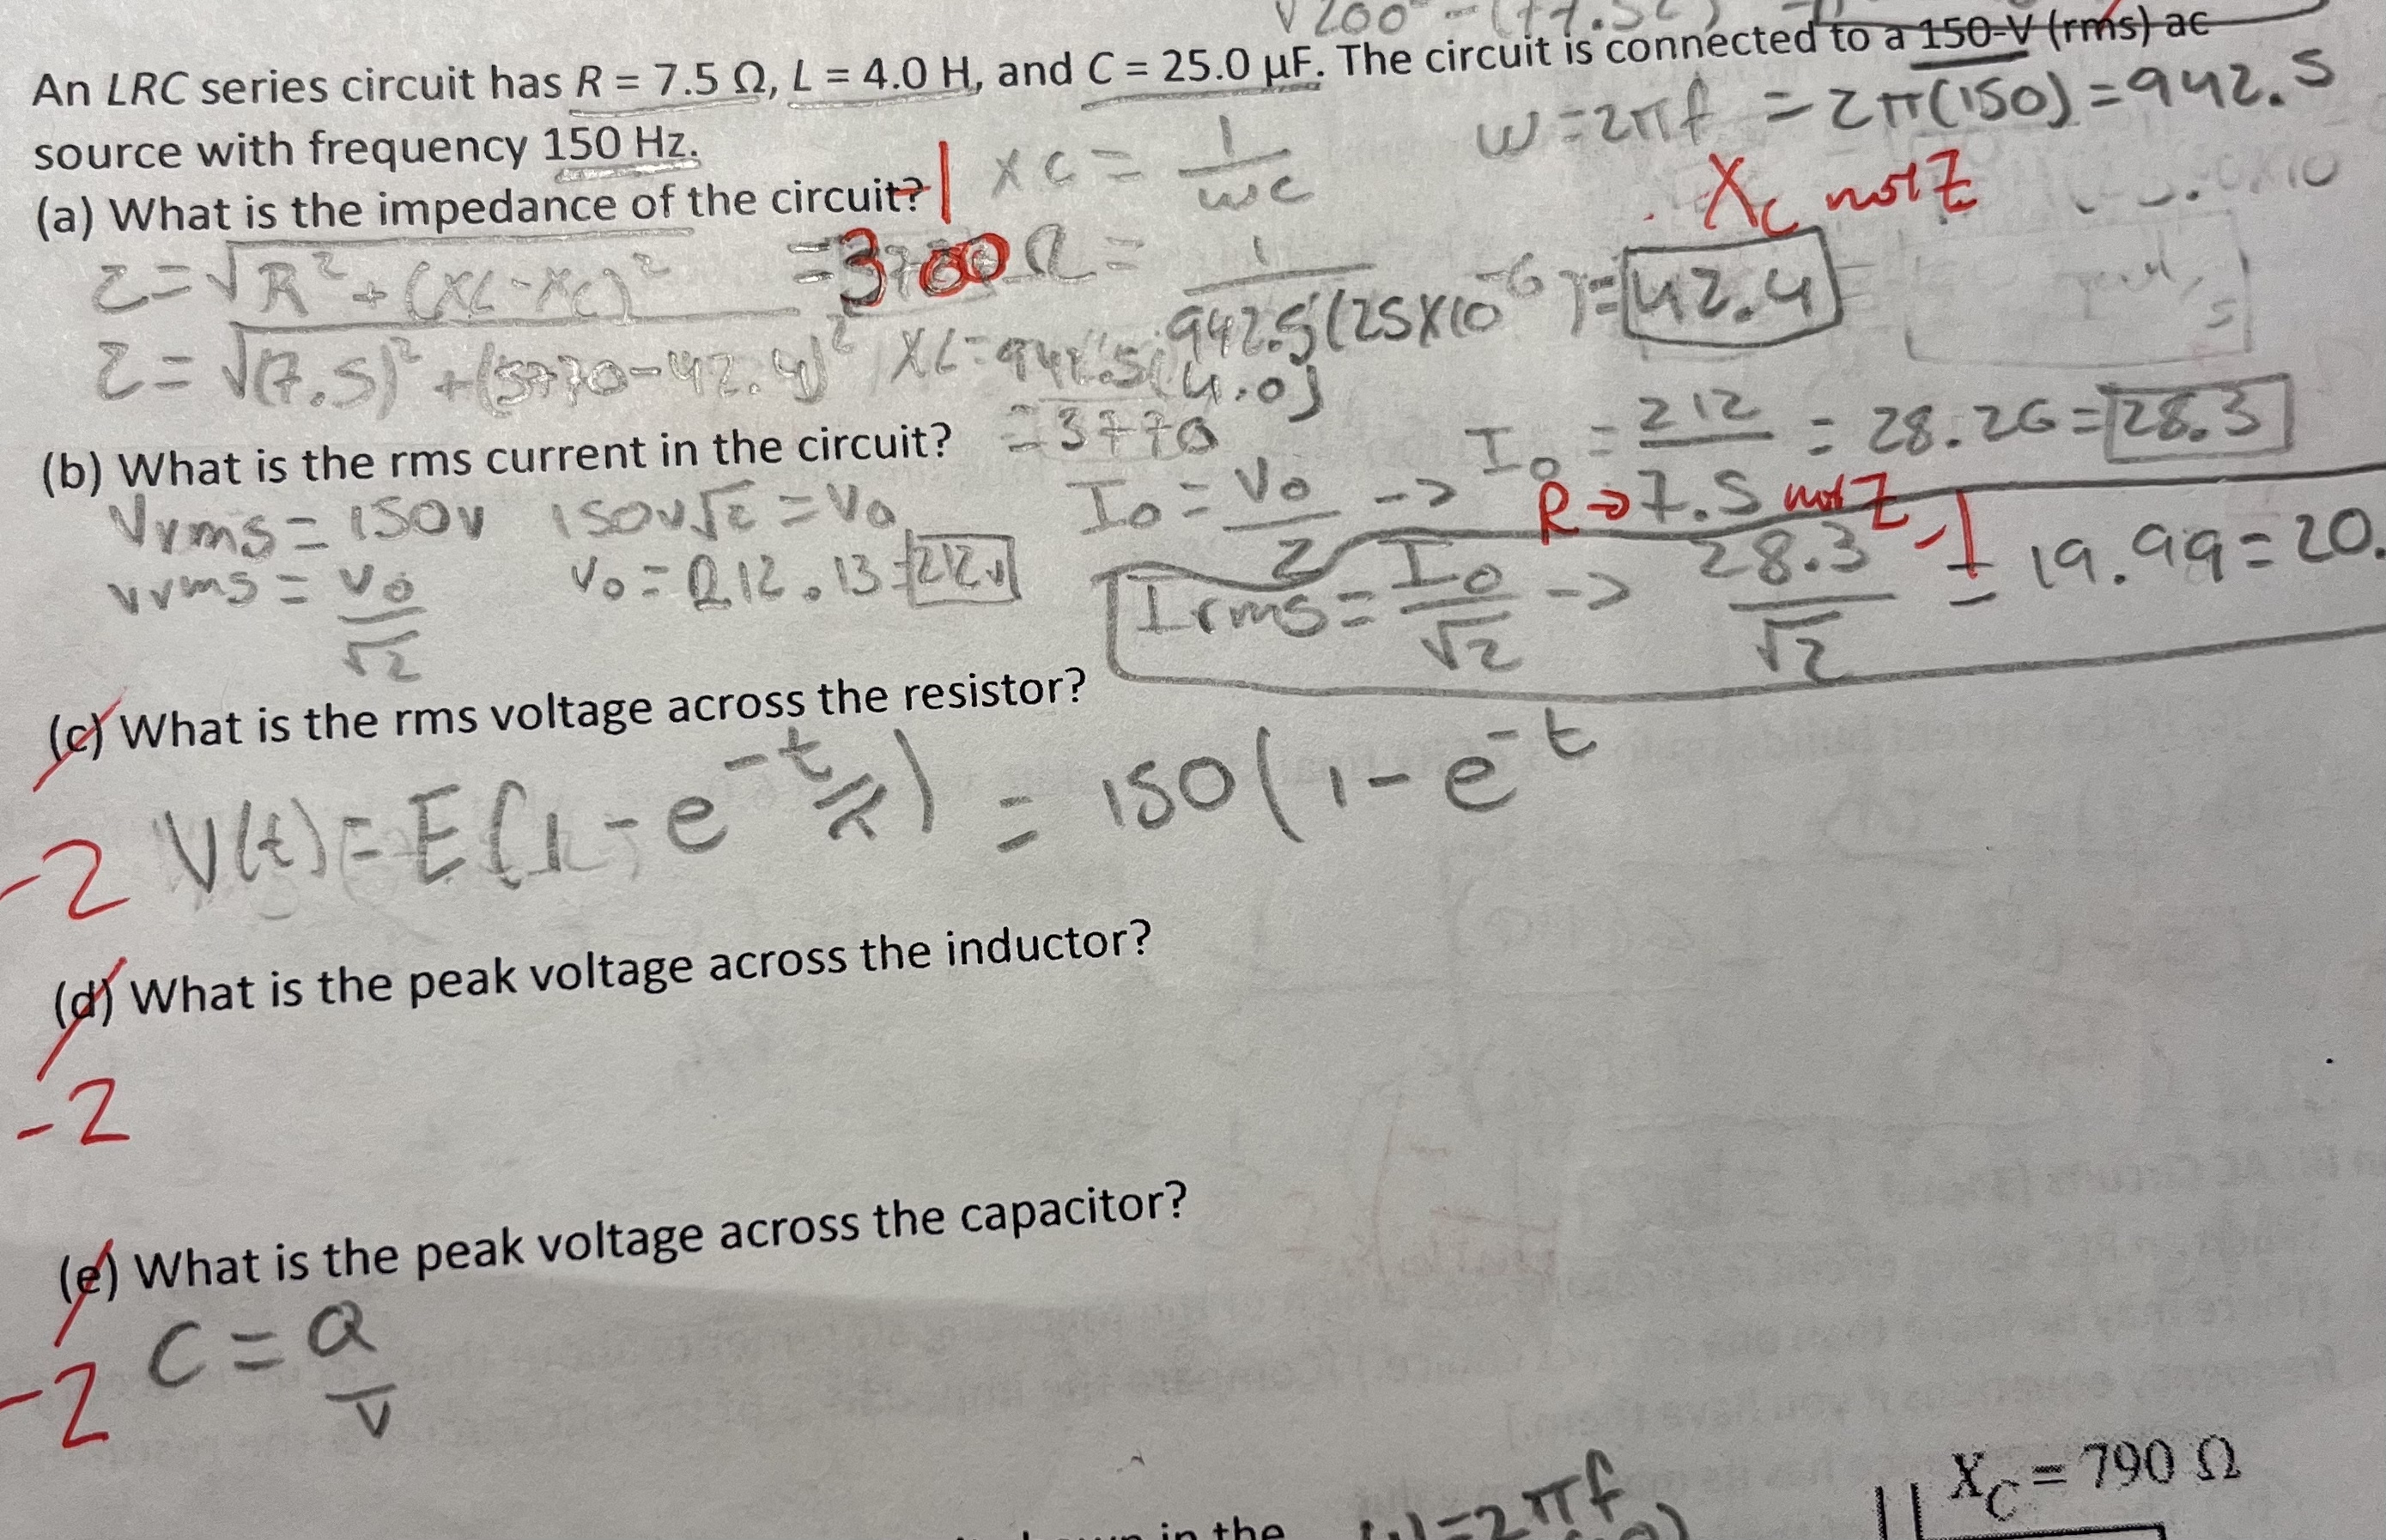 √200
An LRC series circuit has R = 7.5 Ω, L = 4.0 H, and C = 25.0 µF. The circuit is connected to a 150-V (rms) ac
source with frequency 150 Hz.
ω = 2πf = 2π(150) = 942.5
(a) What is the impedance of the circuit? -1
XC = 1/ωC
Xc not Z
Z = √R² + (XL-XC)² = 3700 Ω
= 1/942.5(25X10⁻⁶) = 42.4
Z = √(7.5)² + (3770-42.4)²
XL = 942.5(4.0)
= 3770
(b) What is the rms current in the circuit?
Vrms = 150V
150V√2 = V₀
I₀ = V₀/Z ->
I₀ = 212/7.5 = 28.26 = 28.3
R → not Z
-1
Vrms = V₀/√2
V₀ = 212.13 = 212V
Irms = I₀/√2 -> 28.3/√2 = 19.99 = 20.
(c) What is the rms voltage across the resistor?
-2
V(t) = E(1 - e^-t/R) = 150(1 - e^-t
(d) What is the peak voltage across the inductor?
-2
(e) What is the peak voltage across the capacitor?
-2
C = Q/V
in the
ω = 2πf
XC = 790 Ω